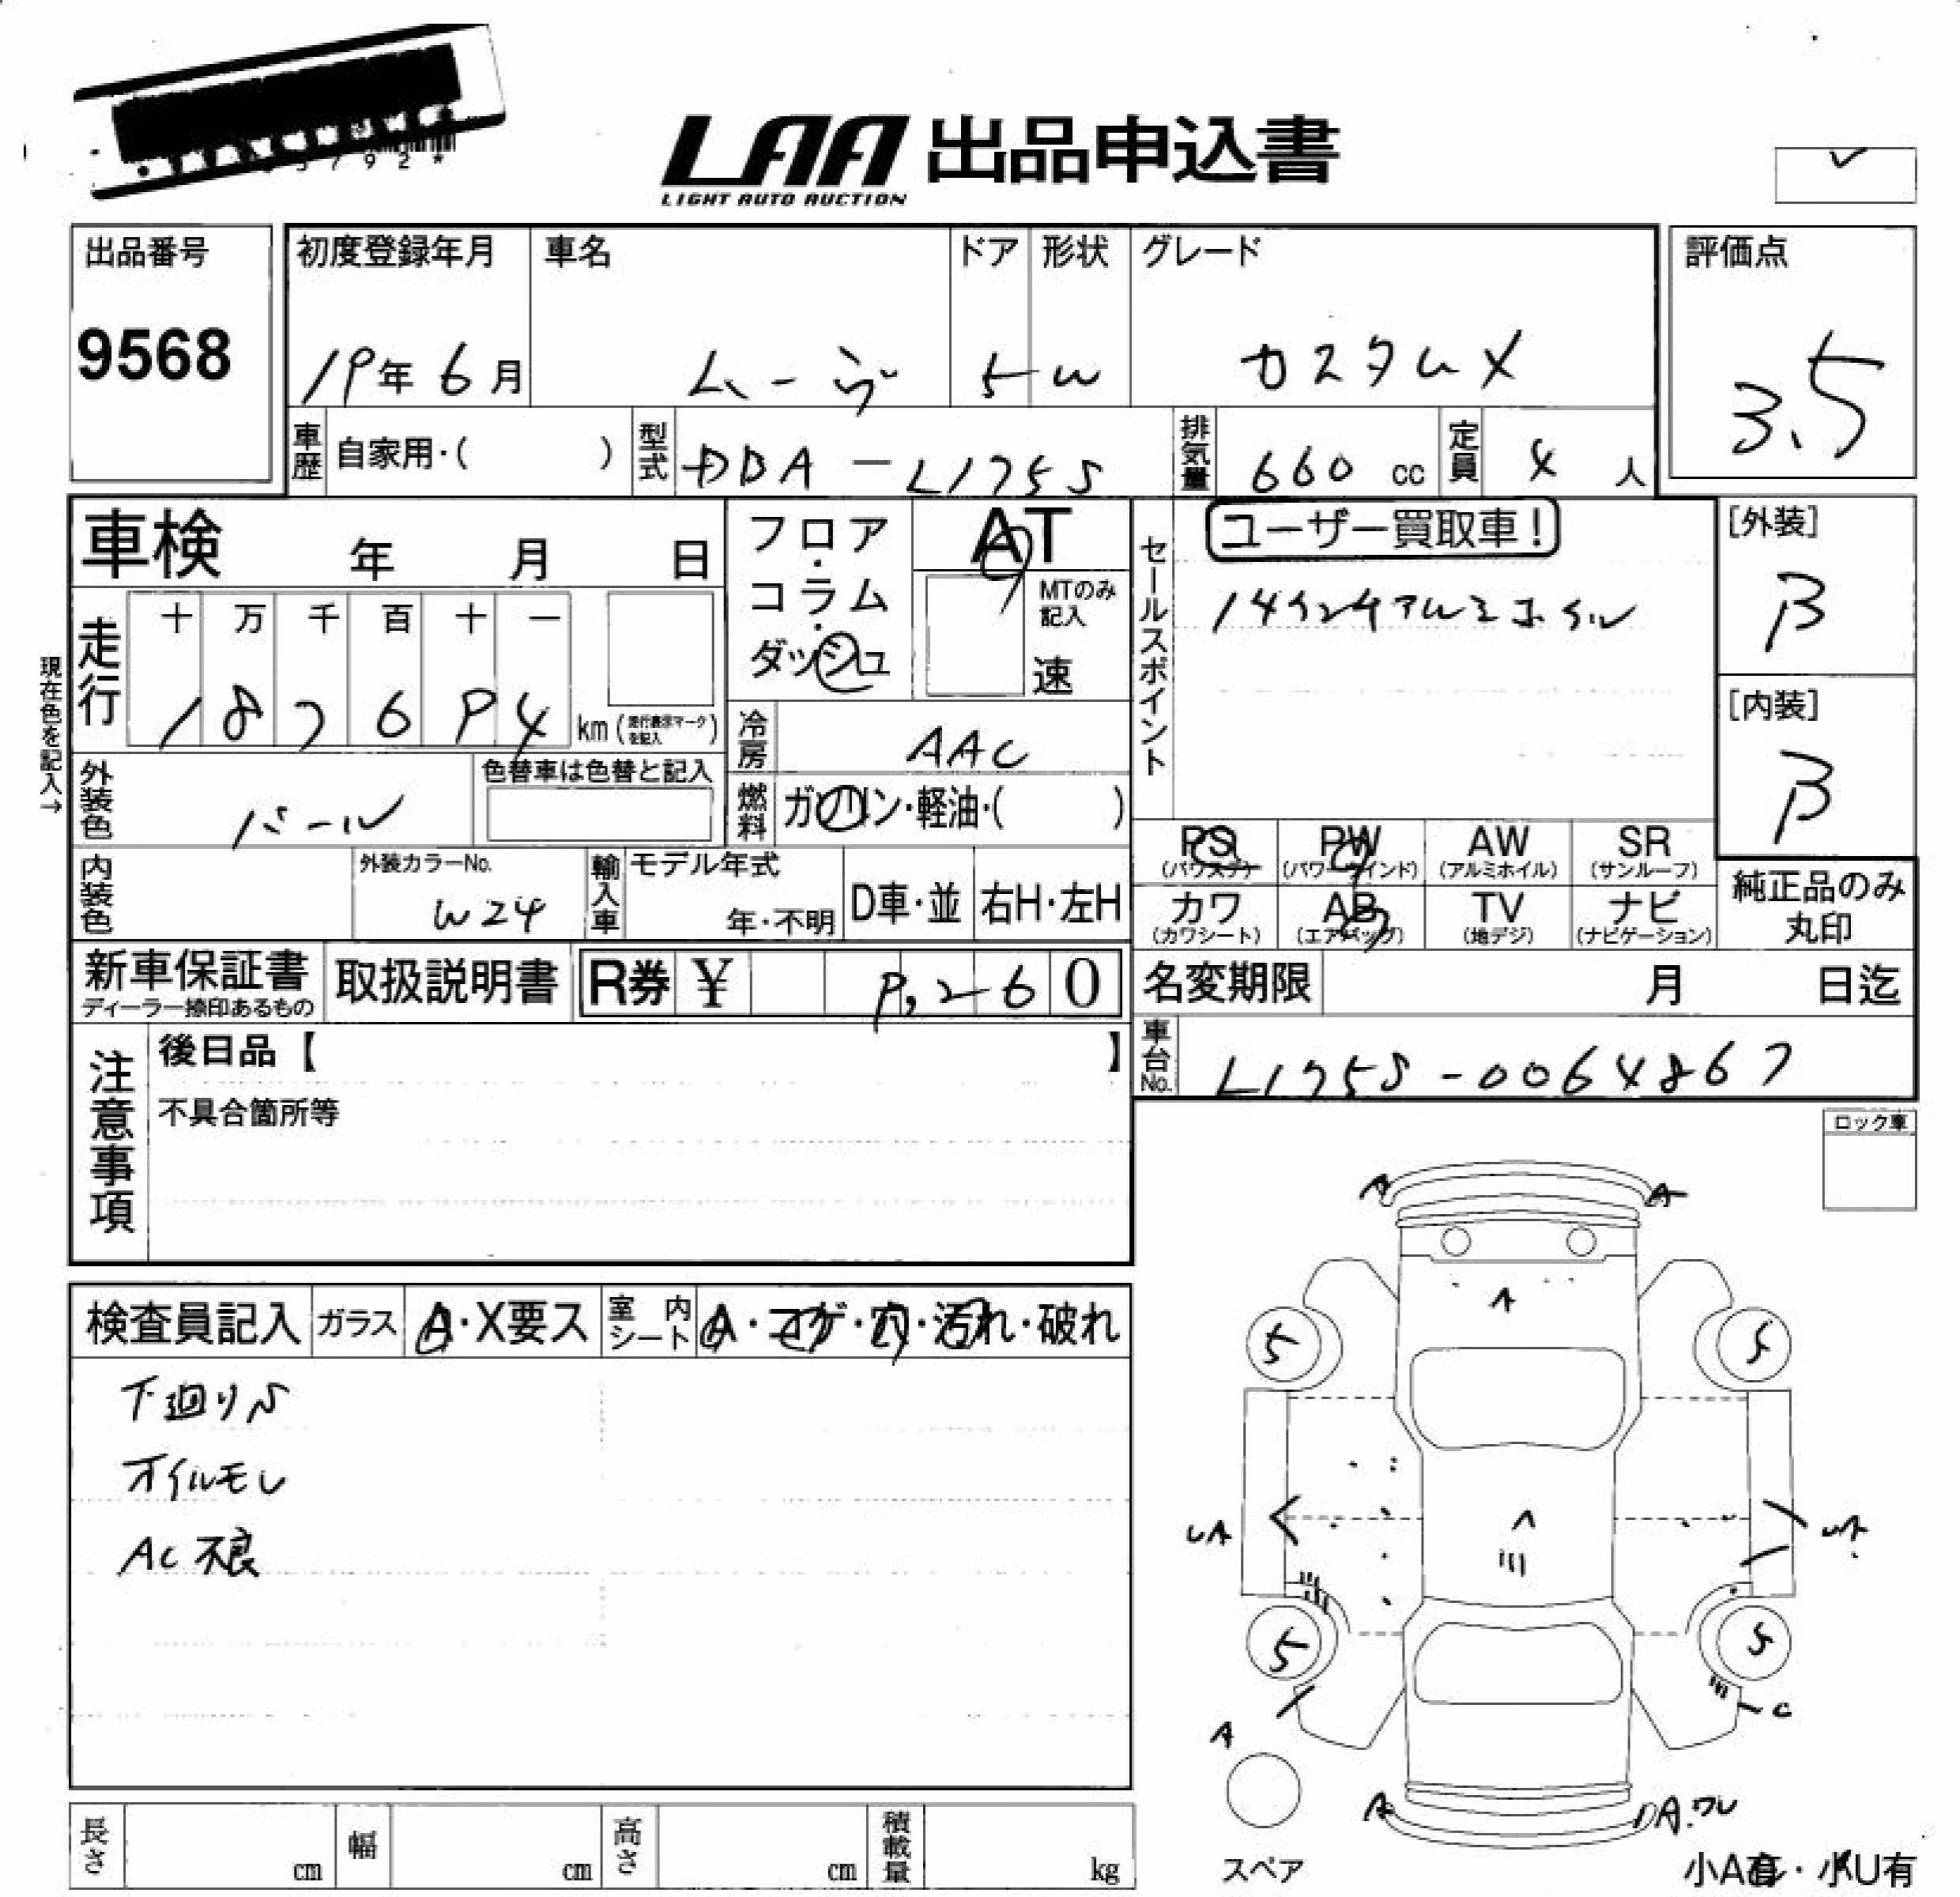 LAA 出品申込書
LIGHT AUTO AUCTION
出品番号
9568
初度登録年月
19年 6月
車名
ムーヴ
ドア
5
形状
W
グレード
カスタムX
評価点
3.5
車歴
自家用・( )
型式
DBA-L175S
排気量
660 cc
定員
4 人
車検 年 月 日
フロア・コラム・ダッシュ
AT
MTのみ記入
速
セールスポイント
ユーザー買取車!
14インチアルミホイル
[外装]
B
[内装]
B
現在色を記入→
走行
十 万 千 百 十 一
1 8 7 6 9 4 km (走行表示マークを記入)
冷房
AAC
外装色
パール
色替車は色替と記入
燃料
ガソリン・軽油・( )
内装色
外装カラーNo.
W24
輸入車
モデル年式
年・不明
D車・並
右H・左H
PS
(パワステ)
PW
(パワーウインド)
AW
(アルミホイル)
SR
(サンルーフ)
カワ
(カワシート)
AB
(エアバッグ)
TV
(地デジ)
ナビ
(ナビゲーション)
純正品のみ丸印
新車保証書
ディーラー捺印あるもの
取扱説明書
R券 ¥ 9,260
名変期限 月 日迄
車台No.
L175S-0064867
注意事項
後日品【 】
不具合箇所等
ロック車
検査員記入
ガラス
A・X要ス
室内シート
A・コゲ・穴・汚れ・破れ
下廻りS
オイルモレ
AC不良
A A
A
5 5
UA UA
5 5
C
A
A DA.ワレ
スペア
小A有・小U有
長さ cm
幅 cm
高さ cm
積載量 kg